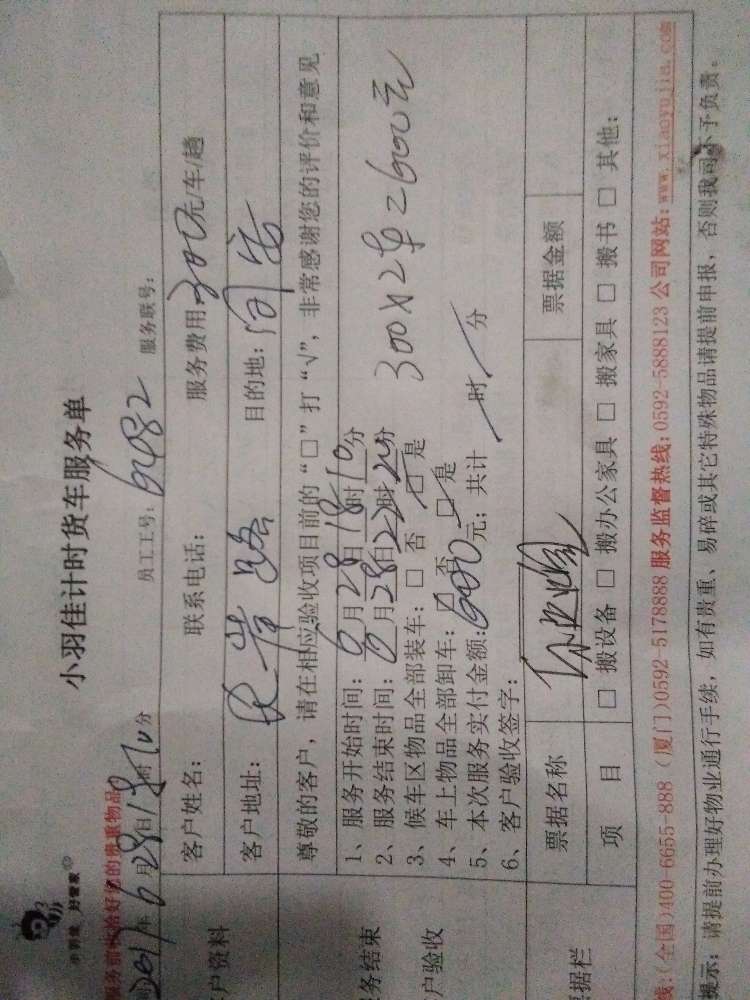 小羽佳 好管家
小羽佳计时货车服务单
服务前
的贵重物品
年6月28日18时10分 员工工号: 6482 服务联号:
客户资料
客户姓名: 联系电话: 服务费用300元/车/趟
客户地址: 长青路 目的地: 同安
尊敬的客户,请在相应验收项目前的“□”打“√”,非常感谢您的评价和意见
服务结束
客户验收
1、服务开始时间: 6月28日18时10分
2、服务结束时间: 6月28日22时20分
3、候车区物品全部装车: □ 否 □ 是
4、车上物品全部卸车: □ 否 □ 是
300×2车=600元
5、本次服务实付金额: 600元; 共计 时 分
6、客户验收签字:
票据栏
票据名称 票据金额
项 目 □ 搬设备 □ 搬办公家具 □ 搬家具 □ 搬书 □ 其他:
线:(全国)400-6655-888 (厦门)0592-5178888 服务监督热线:0592-5888123 公司网站:www.xiaoyujia.com
提示: 请提前办理好物业通行手续,如有贵重、易碎或其它特殊物品请提前申报,否则我司不予负责。